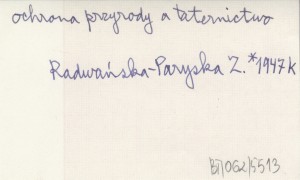 ochrona przyrody a taternictwo
Radwańska-Paryska Z. *1947 k
BT/062/5513